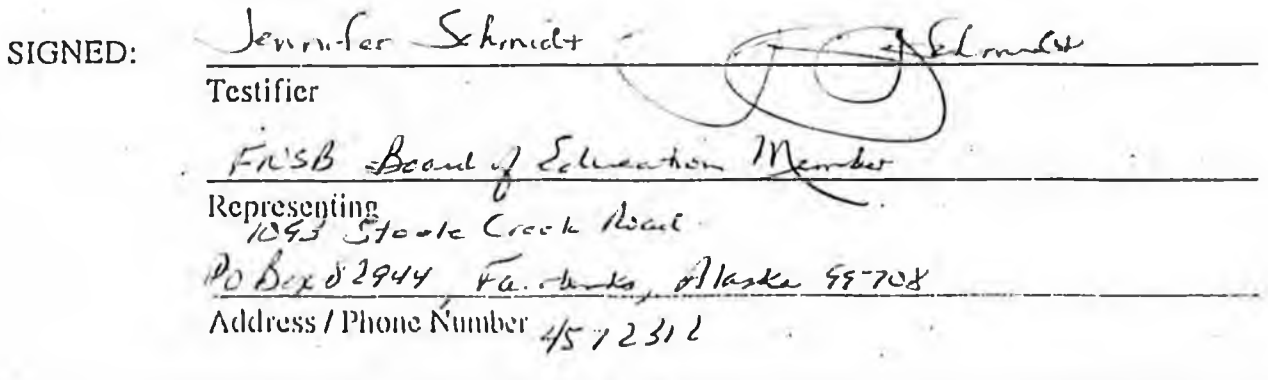 SIGNED: Jennifer Schmidt J Schmidt
Testifier
FNSB Board of Education Member
Representing
1093 Steele Creek Road
PO Box 82944, Fairbanks, Alaska 99708
Address / Phone Number 457 2312